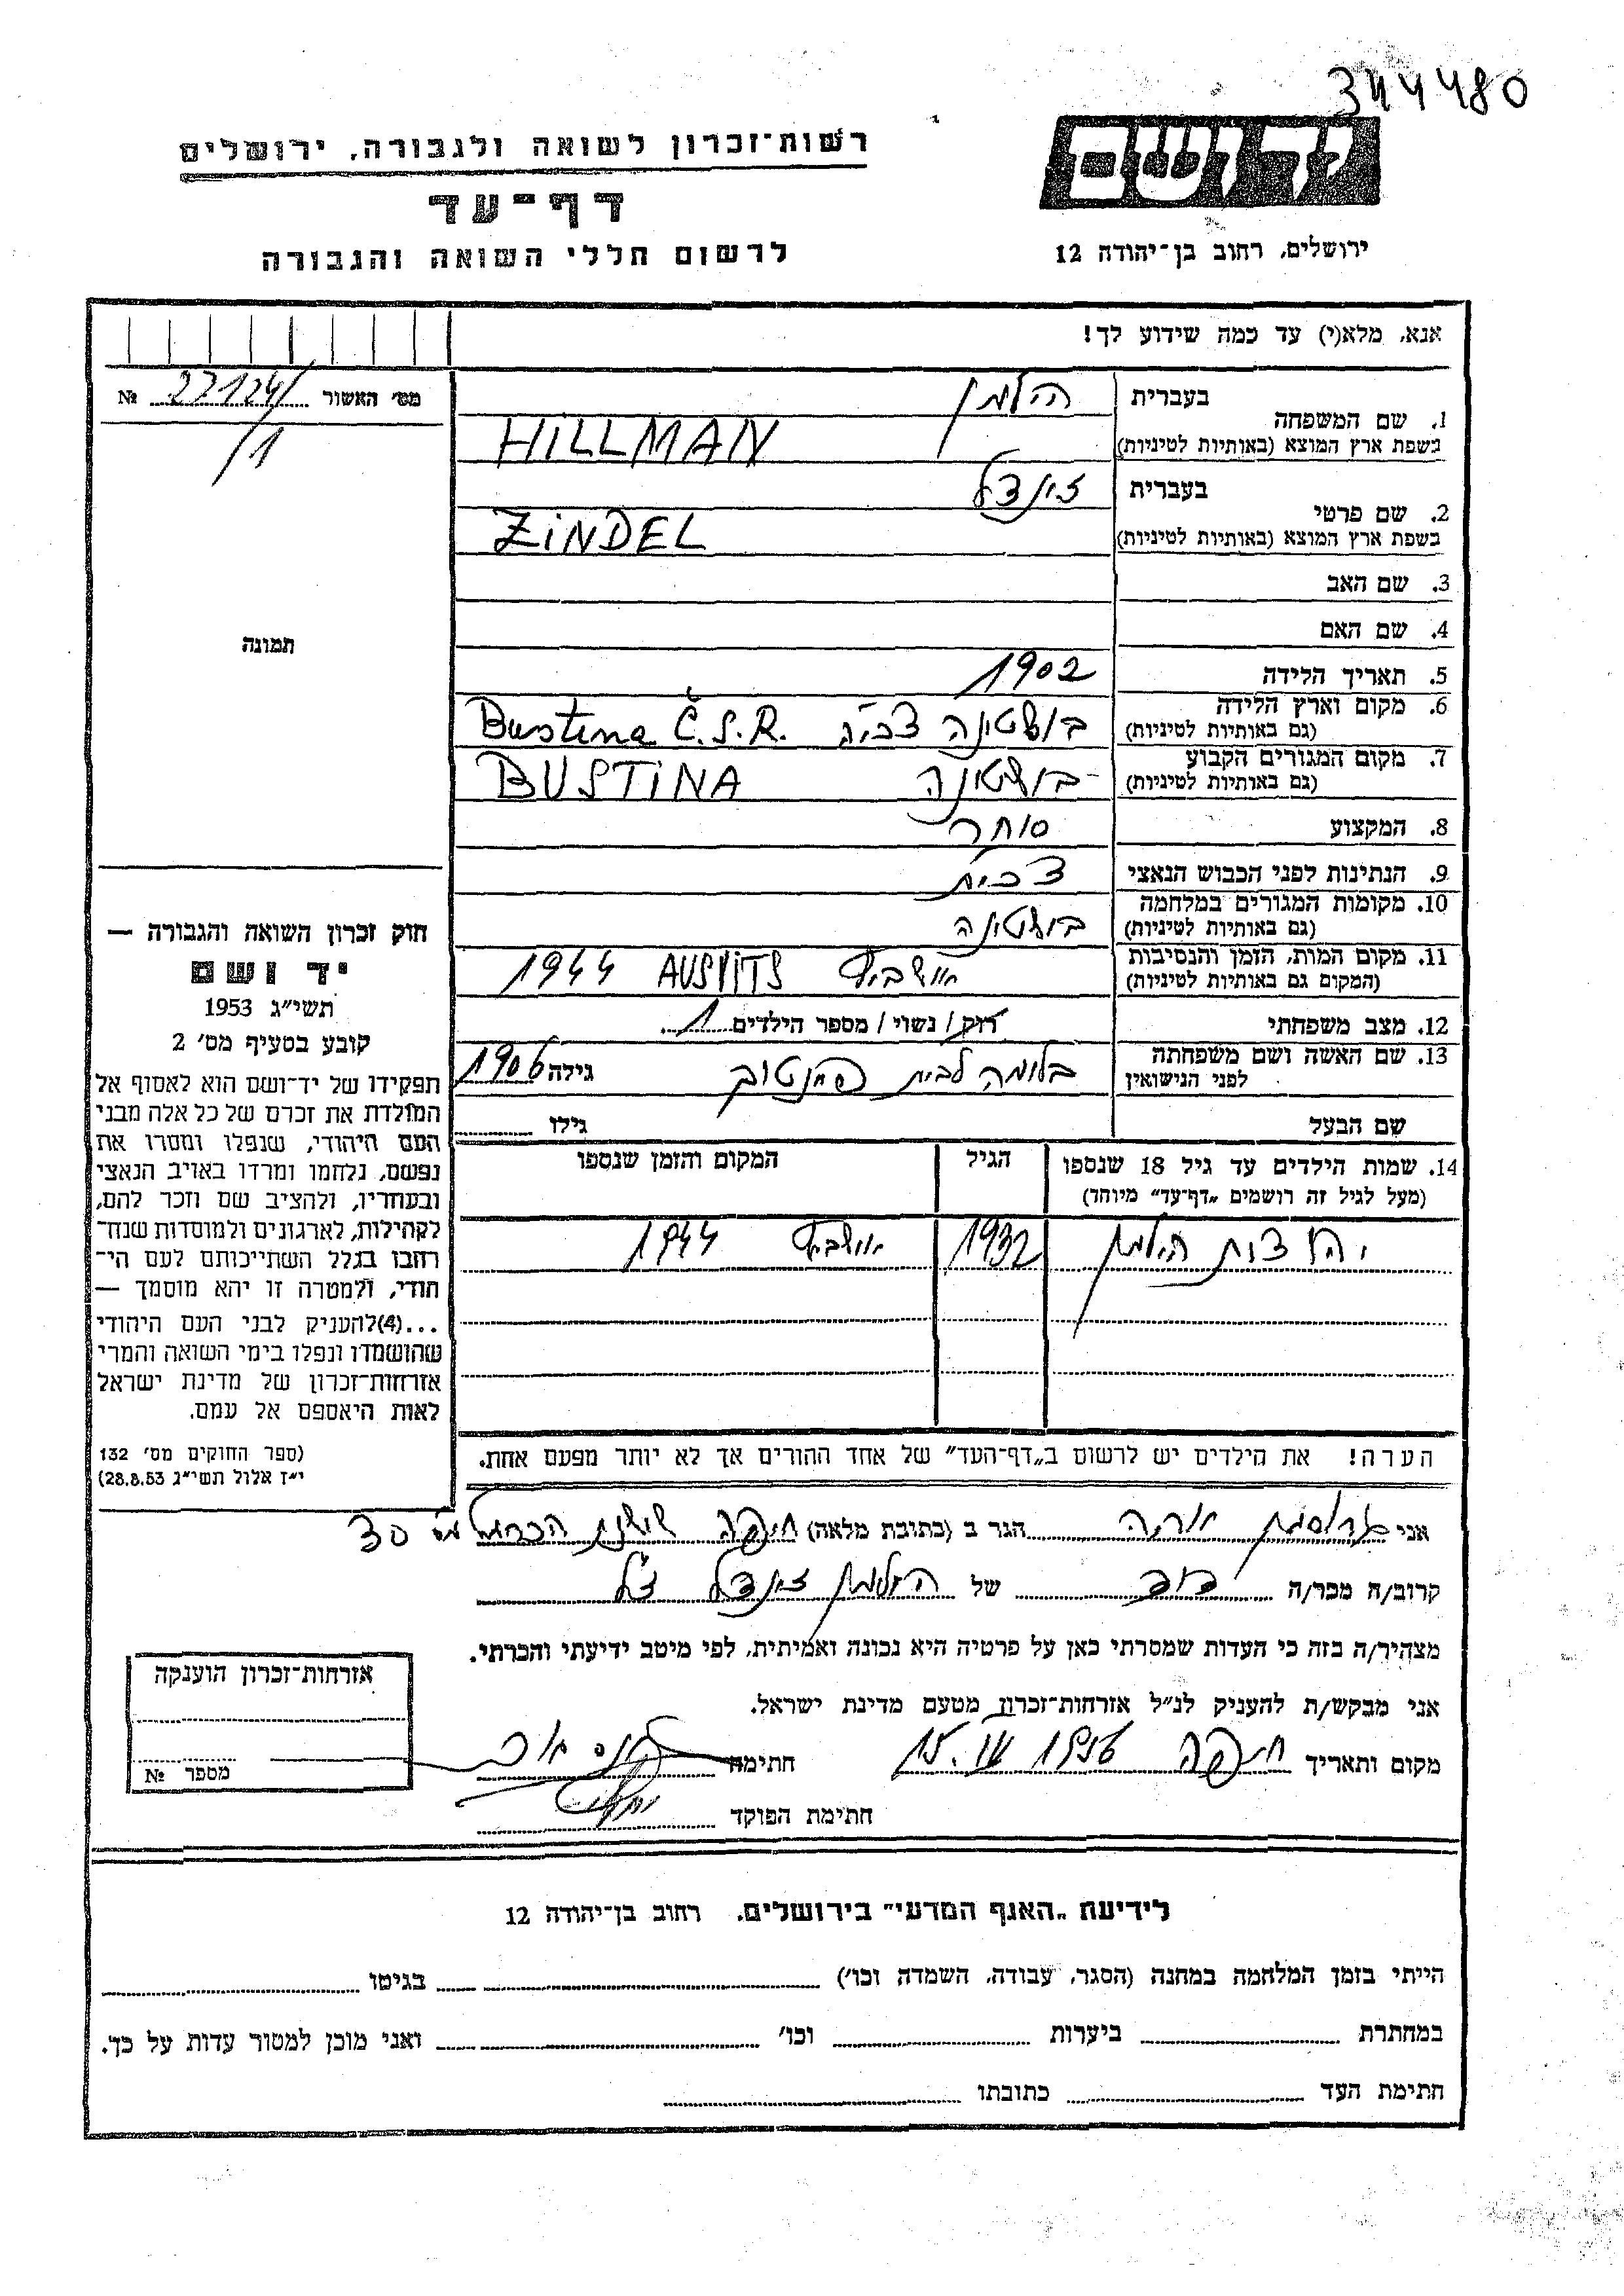 344480
יד ושם
רשות־זכרון לשואה ולגבורה, ירושלים
דף־עד
לרשום חללי השואה והגבורה
ירושלים, רחוב בן־יהודה 12
אנא, מלא(י) עד כמה שידוע לך!
מס׳ האשור 22124/ №
/1
תמונה
1. שם המשפחה
בעברית הלמן
בשפת ארץ המוצא (באותיות לטיניות) HILLMAN
2. שם פרטי
בעברית זינדל
בשפת ארץ המוצא (באותיות לטיניות) ZINDEL
3. שם האב
4. שם האם
5. תאריך הלידה 1902
6. מקום וארץ הלידה
(גם באותיות לטיניות) בושטינה צכיה Bustina Č.S.R.
7. מקום המגורים הקבוע
(גם באותיות לטיניות) בושטינה BUSTINA
8. המקצוע סוחר
9. הנתינות לפני הכבוש הנאצי צכית
10. מקומות המגורים במלחמה
(גם באותיות לטיניות) בושטינה
11. מקום המות, הזמן והנסיבות
(המקום גם באותיות לטיניות) אושביץ AUSVITS 1944
12. מצב משפחתי רוק/ נשוי/ מספר הילדים 1
13. שם האשה ושם משפחתה
לפני הנישואין בלומה לבית גילה 1906
שם הבעל גילו
14. שמות הילדים עד גיל 18 שנספו הגיל המקום והזמן שנספו
(מעל לגיל זה רושמים „דף־עד״ מיוחד)
יהודית הילמן 1932 אושביץ 1944
הערה! את הילדים יש לרשום ב„דף־העד״ של אחד ההורים אך לא יותר מפעם אחת.
חוק זכרון השואה והגבורה —
יד ושם
תשי״ג 1953
קובע בסעיף מס׳ 2
תפקידו של יד־ושם הוא לאסוף אל
המולדת את זכרם של כל אלה מבני
העם היהודי, שנפלו ומסרו את
נפשם, נלחמו ומרדו באויב הנאצי
ובעוזריו, ולהציב שם וזכר להם,
לקהילות, לארגונים ולמוסדות שנח־
רחבו בגלל השתייכותם לעם הי־
הודי, ולמטרה זו יהא מוסמך —
...(4)להעניק לבני העם היהודי
שהושמדו ונפלו בימי השואה והמרי
אזרחות־זכרון של מדינת ישראל
לאות היאספם אל עמם.
(ספר החוקים מס׳ 132
י״ז אלול תשי״ג 28.8.53)
אני גרוסמן אריה הגר ב (כתובת מלאה) חיפה שושנת הכרמל מס 30
קרוב/ה מכר/ה של הלמן זינדל ז״ל
מצהיר/ה בזה כי העדות שמסרתי כאן על פרטיה היא נכונה ואמיתית, לפי מיטב ידיעתי והכרתי.
אני מבקש/ת להעניק לנ״ל אזרחות־זכרון מטעם מדינת ישראל.
מקום ותאריך חיפה 15. IV 1956 חתימה
חתימת הפוקד
אזרחות־זכרון הוענקה
מספר №
לידיעת „האגף המדעי״ בירושלים, רחוב בן־יהודה 12
הייתי בזמן המלחמה במחנה (הסגר, עבודה, השמדה וכו׳) בגיטו
במחתרת ביערות וכו׳ ואני מוכן למסור עדות על כך.
חתימת העד כתובתו